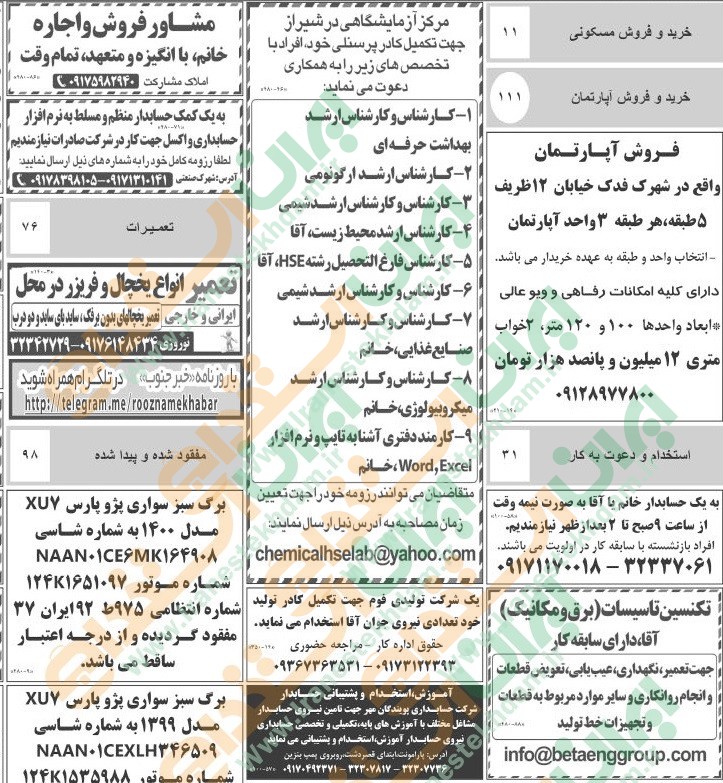 خرید و فروش مسکونی ۱۱
خرید و فروش آپارتمان ۱۱۱
فروش آپارتمان
واقع در شهرک فدک خیابان ۱۲ظریف
۵طبقه،هر طبقه ۳واحد آپارتمان
- انتخاب واحد و طبقه به عهده خریدار می باشد.
دارای کلیه امکانات رفاهی و ویو عالی
*ابعاد واحدها ۱۰۰ و ۱۲۰ متر، ۲خواب
متری ۱۲ میلیون و پانصد هزار تومان
۰۹۱۲۸۹۷۷۸۰۰
استخدام و دعوت به کار ۳۱
به یک حسابدار خانم یا آقا به صورت نیمه وقت
از ساعت ۹صبح تا ۲ بعدازظهر نیازمندیم.
افراد بازنشسته با سابقه کار در اولویت می باشند.
۰۹۱۷۱۱۷۰۰۱۸ - ۳۲۳۳۷۰۶۱
تکنسین تاسیسات (برق و مکانیک)
آقا،دارای سابقه کار
جهت تعمیر، نگهداری، عیب یابی، تعویض قطعات
و انجام روانکاری و سایر موارد مربوط به قطعات
و تجهیزات خط تولید
info@betaenggroup.com
مرکز آزمایشگاهی در شیراز
جهت تکمیل کادر پرسنلی خود، افراد با
تخصص های زیر را به همکاری
دعوت می نماید:
۱- کارشناس و کارشناس ارشد
بهداشت حرفه ای
۲- کارشناس ارشد ارگونومی
۳- کارشناس و کارشناس ارشد شیمی
۴- کارشناس ارشد محیط زیست، آقا
۵- کارشناس فارغ التحصیل رشته HSE، آقا
۶- کارشناس و کارشناس ارشد شیمی
۷- کارشناس و کارشناس ارشد
صنایع غذایی، خانم
۸- کارشناس و کارشناس ارشد
میکروبیولوژی، خانم
۹- کارمند دفتری آشنا به تایپ و نرم افزار
Word, Excel، خانم
متقاضیان می توانند رزومه خود را جهت تعیین
زمان مصاحبه به آدرس ذیل ارسال نمایند:
chemicalhselab@yahoo.com
یک شرکت تولیدی فوم جهت تکمیل کادر تولید
خود تعدادی نیروی جوان آقا استخدام می نماید.
حقوق اداره کار - مراجعه حضوری
۰۹۳۶۷۳۶۳۵۳۱-۰۹۱۷۳۱۲۲۳۹۳
آموزش، استخدام و پشتیبانی حسابدار
شرکت حسابداری پویندگان مهر جهت تامین نیروی حسابدار
مشاغل مختلف با آموزش های پایه، تکمیلی و تخصصی حسابداری
نیروی حسابدار آموزش، استخدام و پشتیبانی می نماید
آدرس: پارامونت، ابتدای قصردشت، روبروی پمپ بنزین
۰۹۱۷۰۴۹۲۳۷۱ - ۳۲۳۰۷۸۱۷ - ۳۲۳۰۷۷۳۶
مشاور فروش و اجاره
خانم، با انگیزه و متعهد، تمام وقت
املاک مشارکت ۰۹۱۷۵۹۸۲۹۳۰
به یک کمک حسابدار منظم و مسلط به نرم افزار
حسابداری و اکسل جهت کار در شرکت صادرات نیازمندیم
لطفا رزومه کامل خود را به شماره های ذیل ارسال نمایید:
آدرس: شهرک صنعتی ۰۹۱۷۸۳۹۸۱۰۵-۰۹۱۷۱۳۱۰۱۴۱
تعمیرات ۷۶
تعمیر انواع یخچال و فریزر در محل
ایرانی و خارجی تعمیر یخچالهای بدون برفک، ساید بای ساید و دو درب
نوروزی ۰۹۱۷۶۱۴۸۴۳۴-۳۲۳۴۲۷۲۹
با روزنامه «خبر جنوب» در تلگرام همراه شوید
http://telegram.me/rooznamekhabar
مفقود شده و پیدا شده ۹۸
برگ سبز سواری پژو پارس XU۷
مدل ۱۴۰۰ به شماره شاسی
NAAN۰۱CE۶MK۱۶۴۹۰۸
شماره موتور ۱۲۴K۱۶۵۱۰۹۷
شماره انتظامی ۹۷۵ط ۹۲ ایران ۳۷
مفقود گردیده و از درجه اعتبار
ساقط می باشد.
برگ سبز سواری پژو پارس XU۷
مدل ۱۳۹۹ به شماره شاسی
NAAN۰۱CEXLH۳۴۶۵۰۹
شماره موتور ۱۲۴K۱۵۳۵۹۸۸